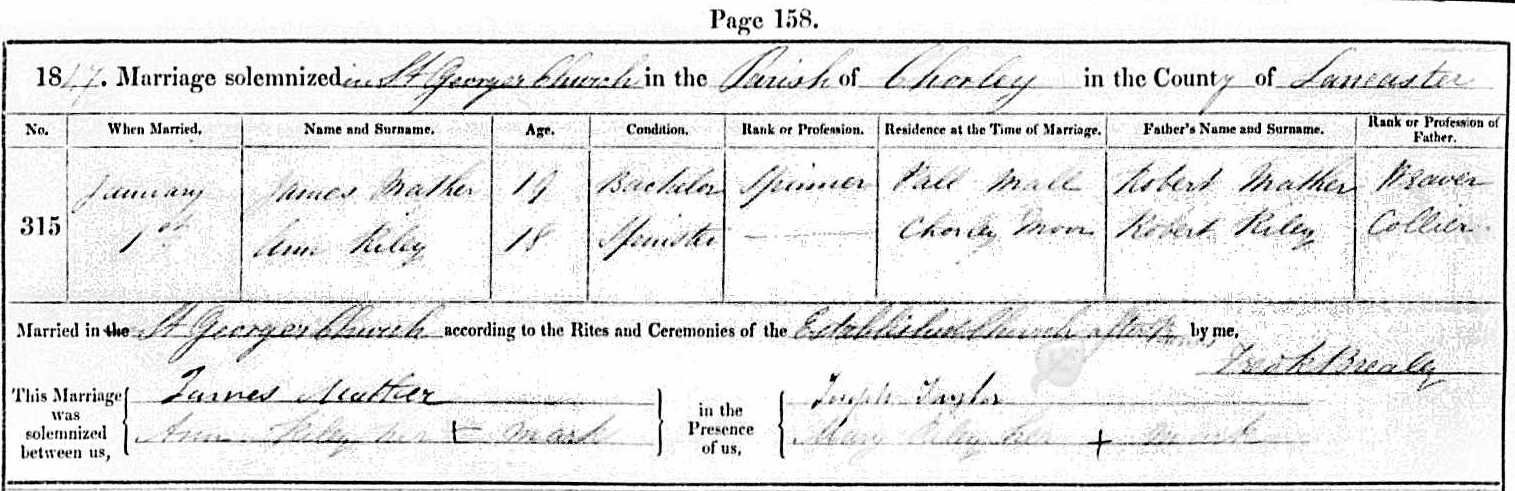 Page 158.
1847. Marriage solemnized in St Georges Church in the Parish of Chorley in the County of Lancaster
No. When Married. Name and Surname. Age. Condition. Rank or Profession. Residence at the Time of Marriage. Father's Name and Surname. Rank or Profession of Father.
January James Mather 19 Bachelor Spinner Pall Mall Robert Mather Weaver
315 1st Ann Riley 18 Spinster — Chorley Moor Robert Riley Collier
Married in the St Georges Church according to the Rites and Ceremonies of the Established Church after Banns by me,
Brealey
This Marriage was solemnized between us, James Mather in the Presence of us, Joseph Taylor
Ann Riley her + mark Mary Riley her + mark